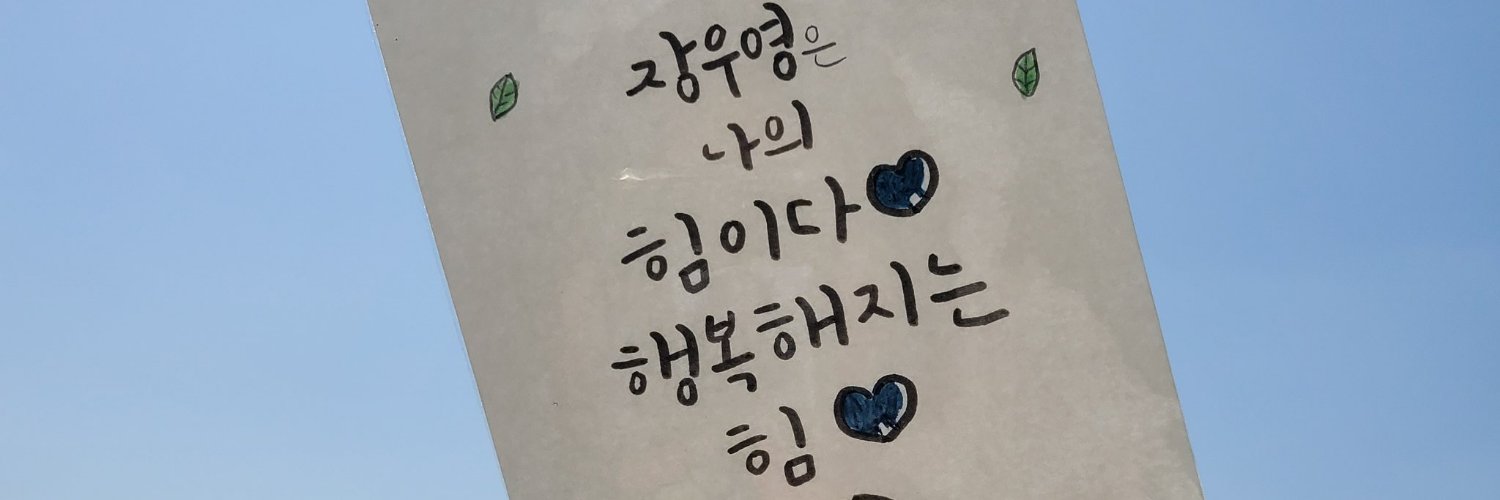 장우영은
나의
힘이다
행복해지는
힘